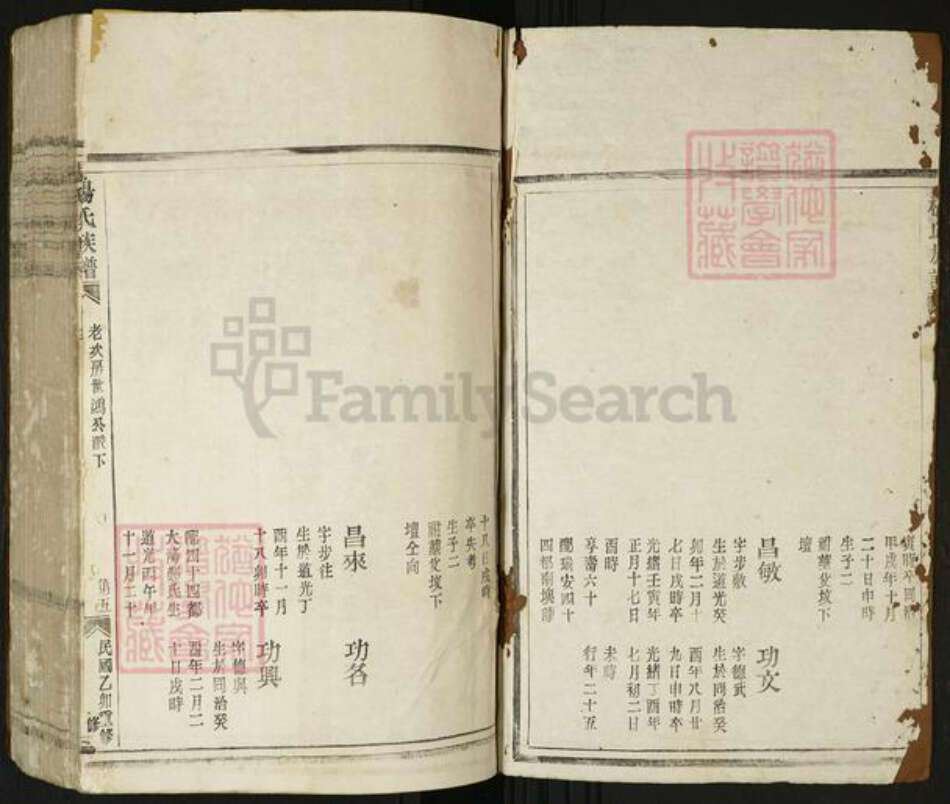 甲戌年十月
二十日申時
生子二
祔葬父墳下
壇
昌敏
字步敏
生於道光癸
卯年二月十
七日戌時卒
光緒壬寅年
正月十七日
酉時
享壽六十
配瑞安四十
四都南墺薛
功文
字德武
生於同治癸
酉年八月廿
九日申時卒
光緒丁酉年
七月初二日
未時
行年二十五
十八日戌時
卒失考
生子二
祔葬父墳下
壇仝向
昌來
字步往
生於道光丁
酉年十一月
十八卯時卒
配四十四都
道光丙午年
十一月二十
功名
功興
字德興
生於同治癸
酉年二月二
十日戌時
楊氏族譜
老次房世鴻公派下
第五
民國乙卯重修
譜學會
藏
FamilySearch